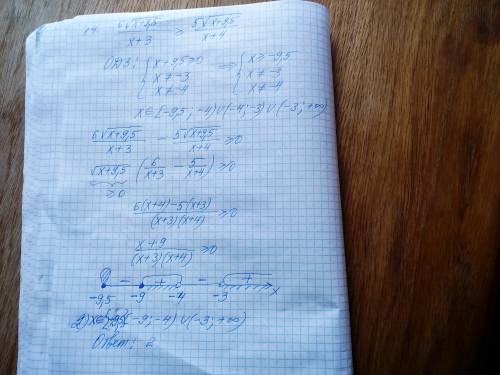 14. 6√x+9,5 / x+3 ≥ 5√x+9,5 / x+4
ОДЗ: { x+9,5≥0 ; x≠-3 ; x≠-4 ⇔ { x≥-9,5 ; x≠-3 ; x≠-4
x∈[-9,5; -4)∪(-4;-3)∪(-3;+∞)
6√x+9,5 / x+3 - 5√x+9,5 / x+4 ≥0
√x+9,5 (6 / x+3 - 5 / x+4) ≥0
≥0
6(x+4)-5(x+3) / (x+3)(x+4) ≥0
x+9 / (x+3)(x+4) ≥0
- + - + x
-9,5 -9 -4 -3
(-9;-4)∪(-3;+∞)
Ответ: 2